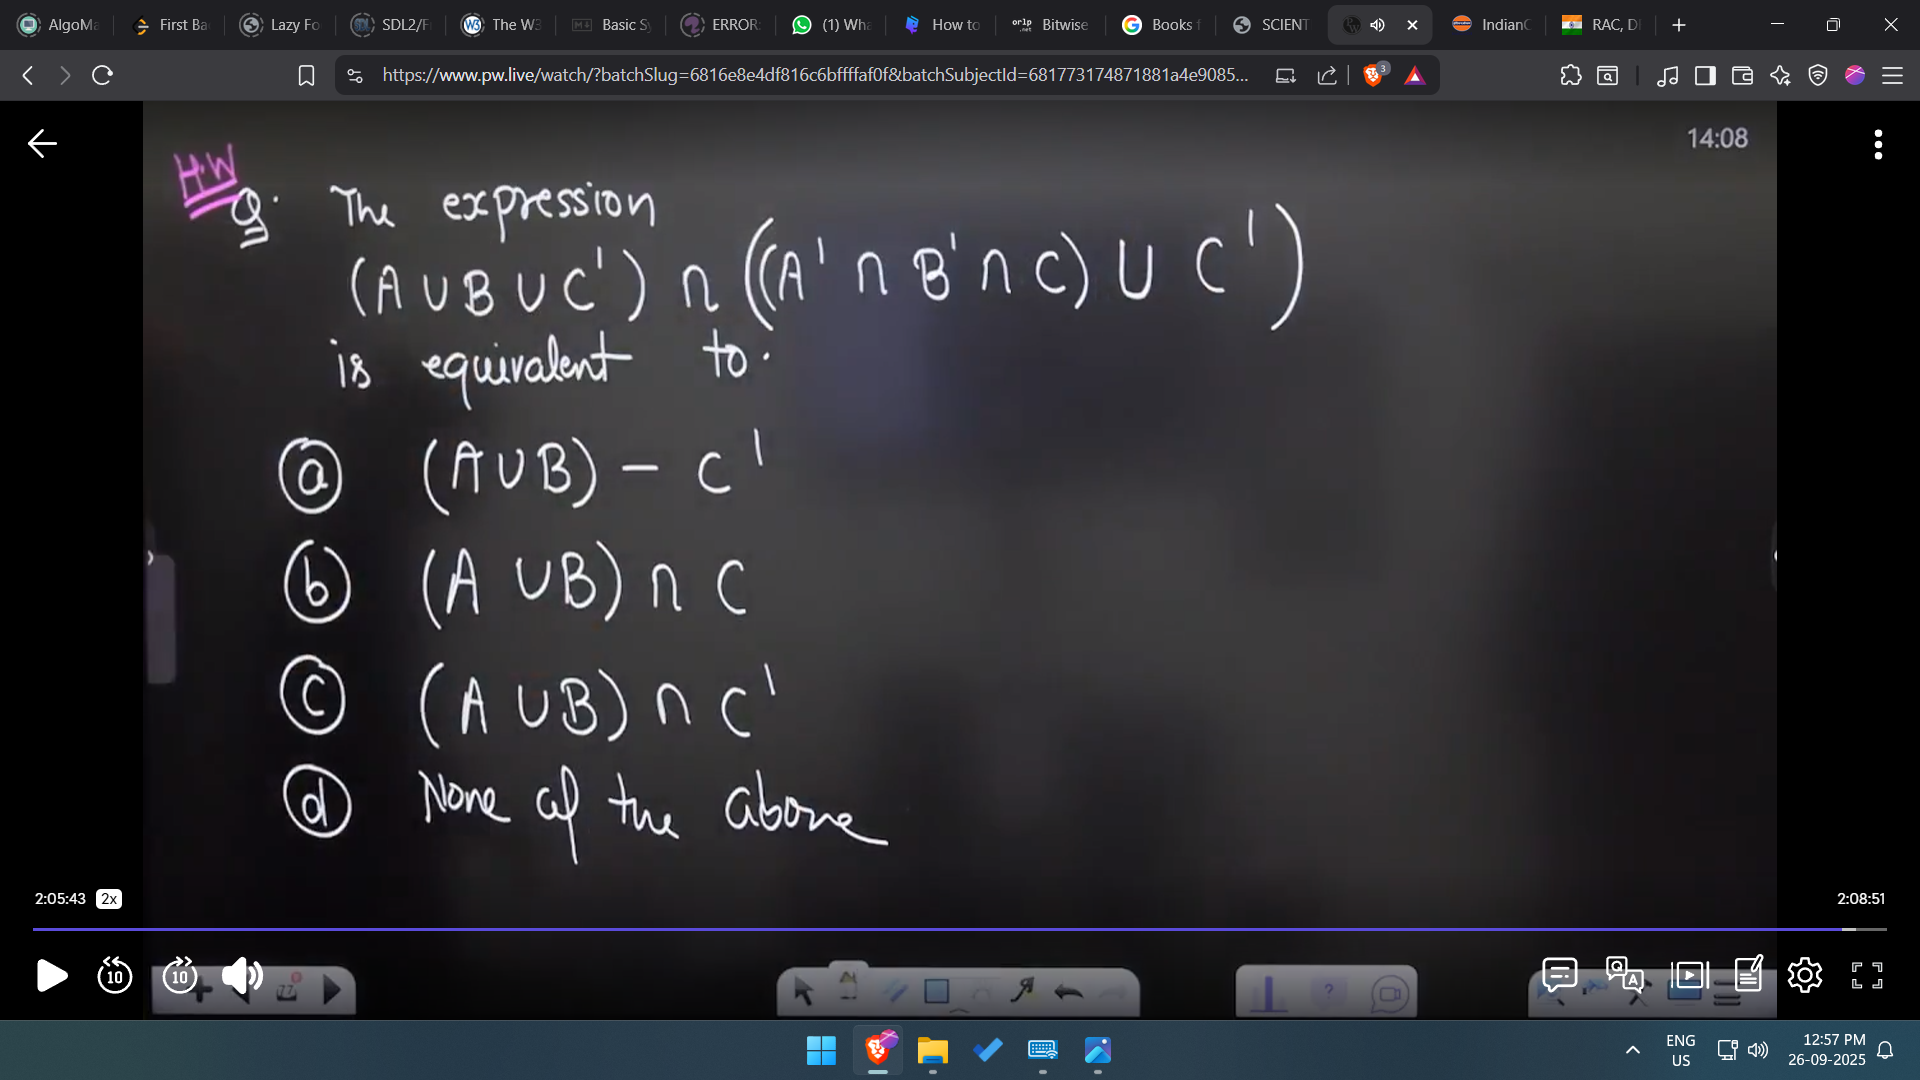 AlgoMa
First Ba
Lazy Fo
SDL2/F
The W3
Basic Sy
ERROR:
(1) Wha
How to
Bitwise
Books f
SCIENT
Indian
RAC, D
https://www.pw.live/watch/?batchSlug=6816e8e4df816c6bffffaf0f&batchSubjectId=681773174871881a4e9085...
3
14:08
H.W
Q. The expression
(A ∪ B ∪ C') ∩ ((A' ∩ B' ∩ C) ∪ C')
is equivalent to.
(a) (A ∪ B) - C'
(b) (A ∪ B) ∩ C
(c) (A ∪ B) ∩ C'
(d) None of the above
2:05:43 2x
2:08:51
10
10
ENG
US
12:57 PM
26-09-2025